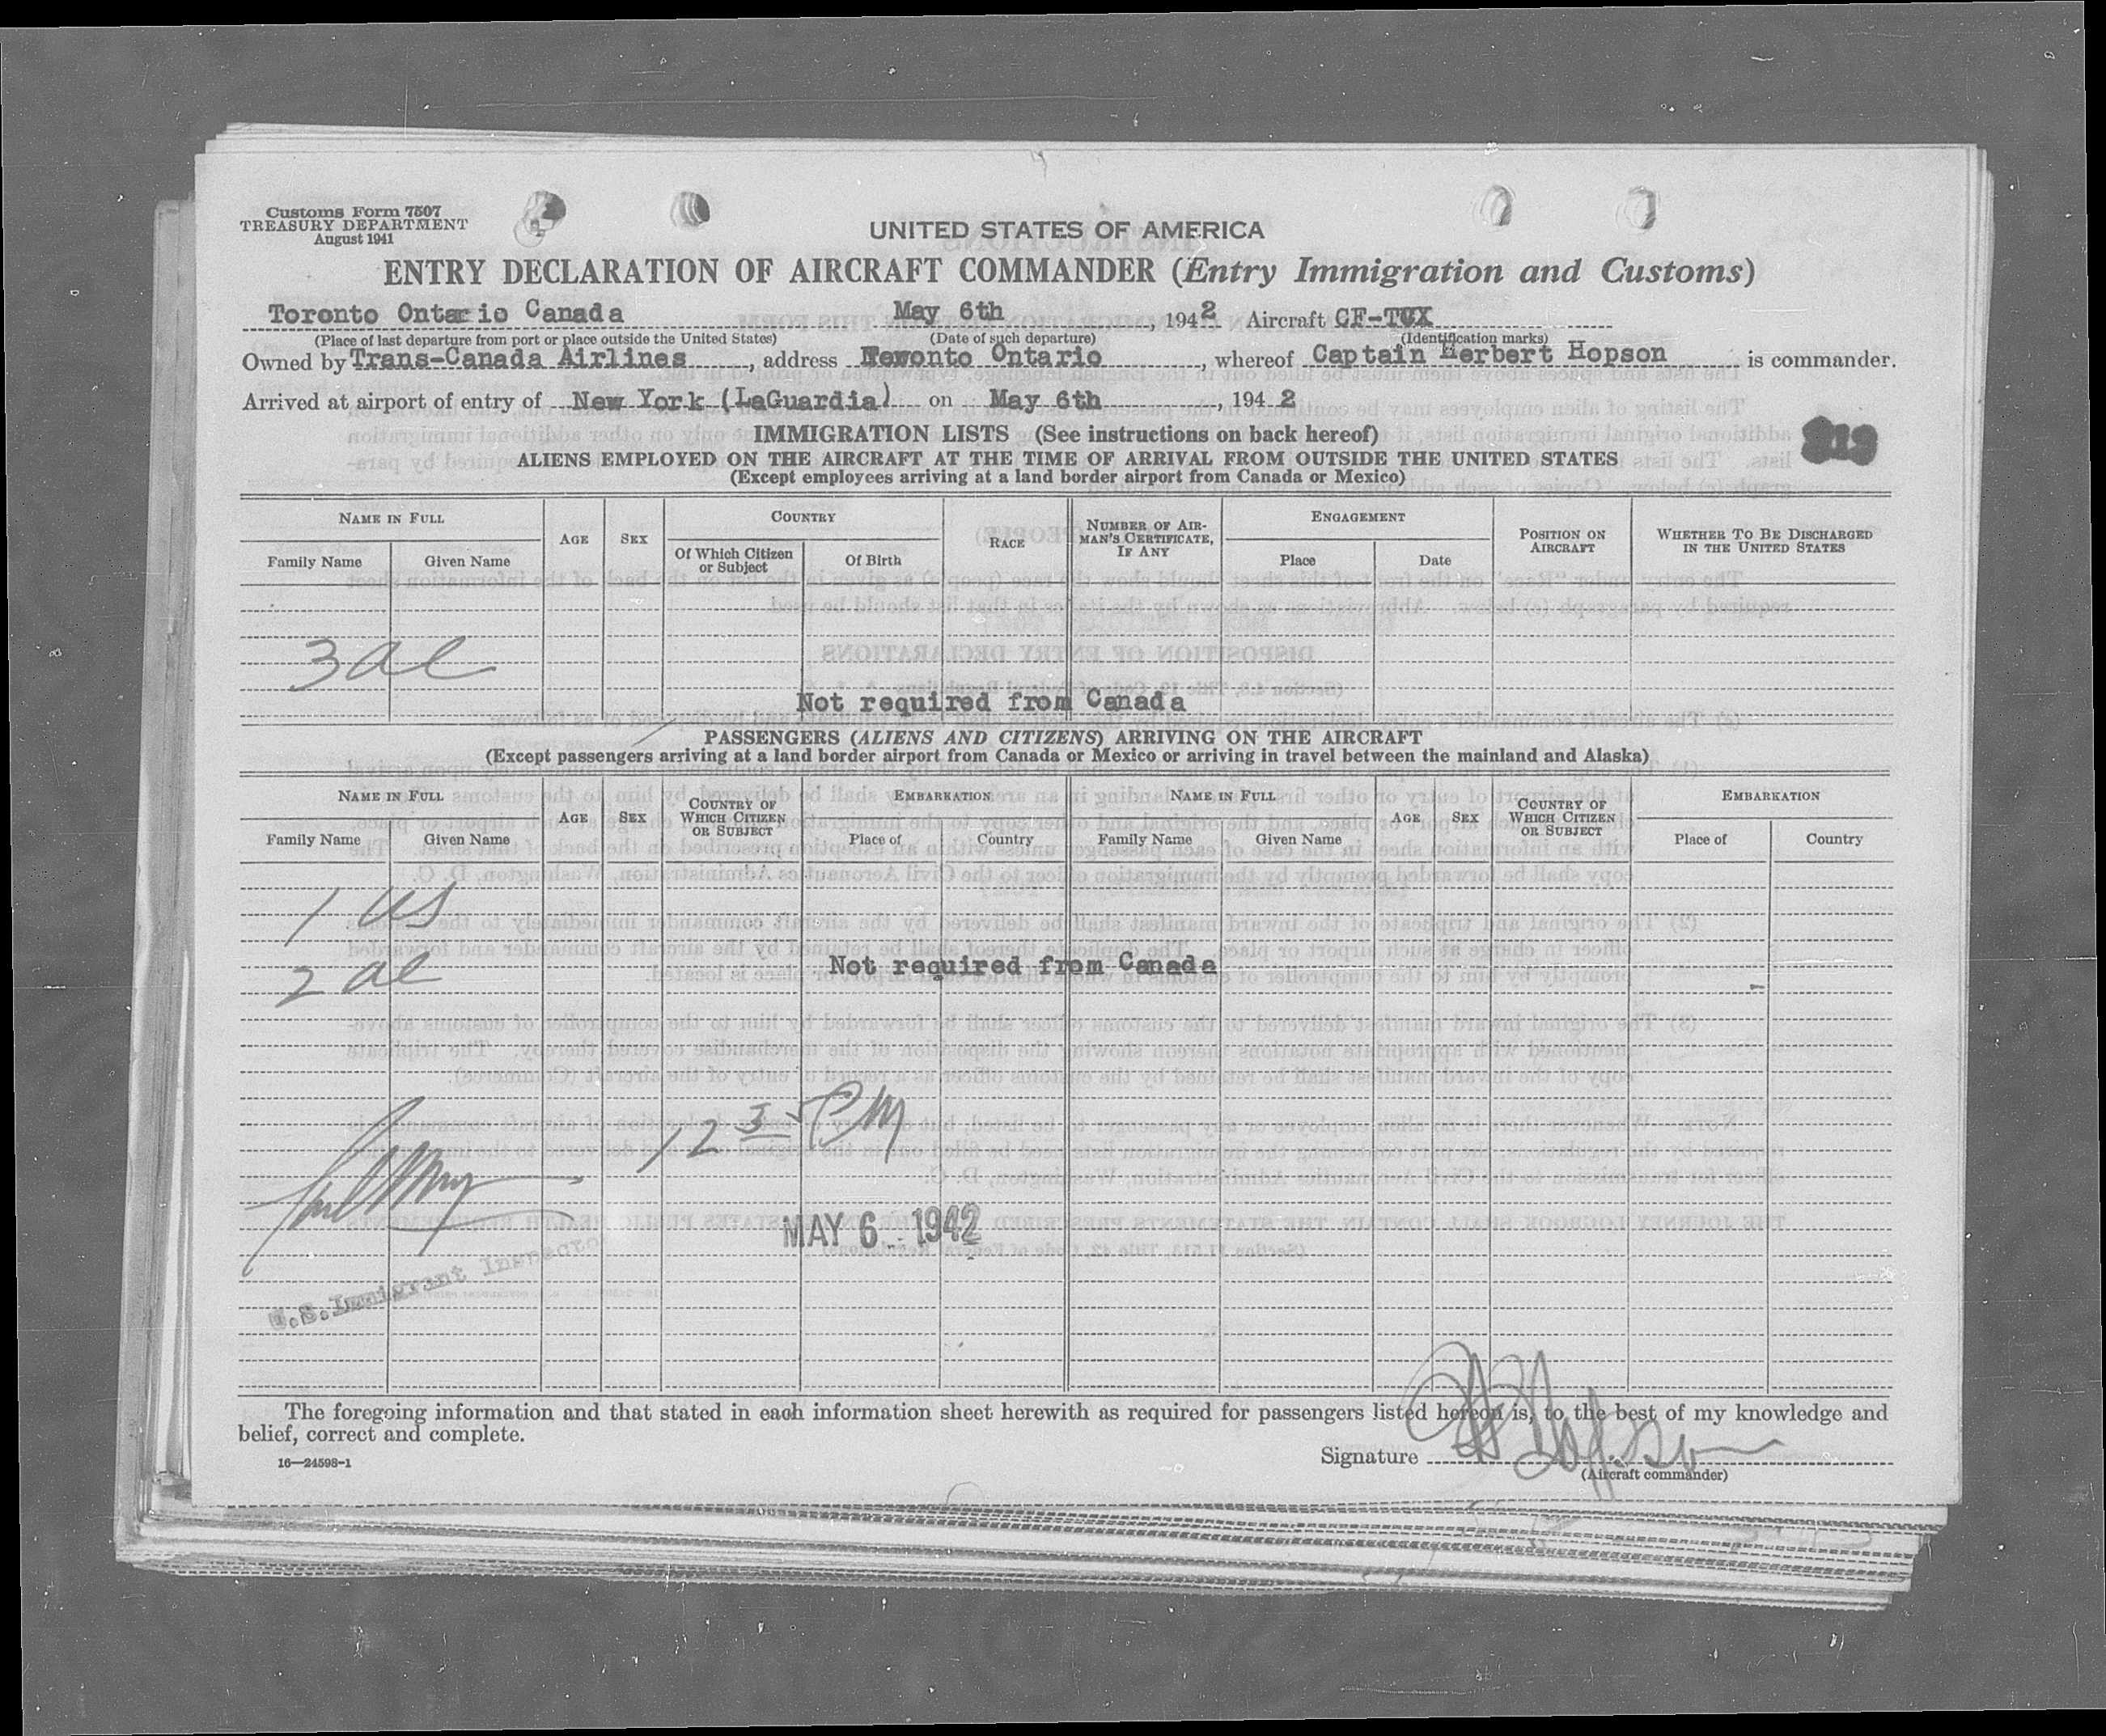 Customs Form 7507
TREASURY DEPARTMENT
August 1941
UNITED STATES OF AMERICA
ENTRY DECLARATION OF AIRCRAFT COMMANDER (Entry Immigration and Customs)
Toronto Ontario Canada May 6th, 1942 Aircraft
(Place of last departure from port or place outside the United States) (Date of such departure) (Identification marks)
Owned by Trans-Canada Airlines, address Toronto Ontario, whereof Captain Herbert Hopson is commander.
Arrived at airport of entry of New York (LaGuardia) on May 6th, 1942
IMMIGRATION LISTS (See instructions on back hereof)
ALIENS EMPLOYED ON THE AIRCRAFT AT THE TIME OF ARRIVAL FROM OUTSIDE THE UNITED STATES
(Except employees arriving at a land border airport from Canada or Mexico)
NAME IN FULL AGE SEX COUNTRY RACE NUMBER OF AIRMAN'S CERTIFICATE, IF ANY ENGAGEMENT POSITION ON AIRCRAFT WHETHER TO BE DISCHARGED IN THE UNITED STATES
Family Name Given Name Of Which Citizen or Subject Of Birth Place Date
3 al
Not required from Canada
PASSENGERS (ALIENS AND CITIZENS) ARRIVING ON THE AIRCRAFT
(Except passengers arriving at a land border airport from Canada or Mexico or arriving in travel between the mainland and Alaska)
NAME IN FULL AGE SEX COUNTRY OF WHICH CITIZEN OR SUBJECT EMBARKATION NAME IN FULL AGE SEX COUNTRY OF WHICH CITIZEN OR SUBJECT EMBARKATION
Family Name Given Name Place of Country Family Name Given Name Place of Country
1 US
2 al
Not required from Canada
12 35 PM
MAY 6 1942
U.S. Immigrant Inspector
The foregoing information and that stated in each information sheet herewith as required for passengers listed hereon is, to the best of my knowledge and
belief, correct and complete.
16—24598-1
Signature H Hopson
(Aircraft commander)